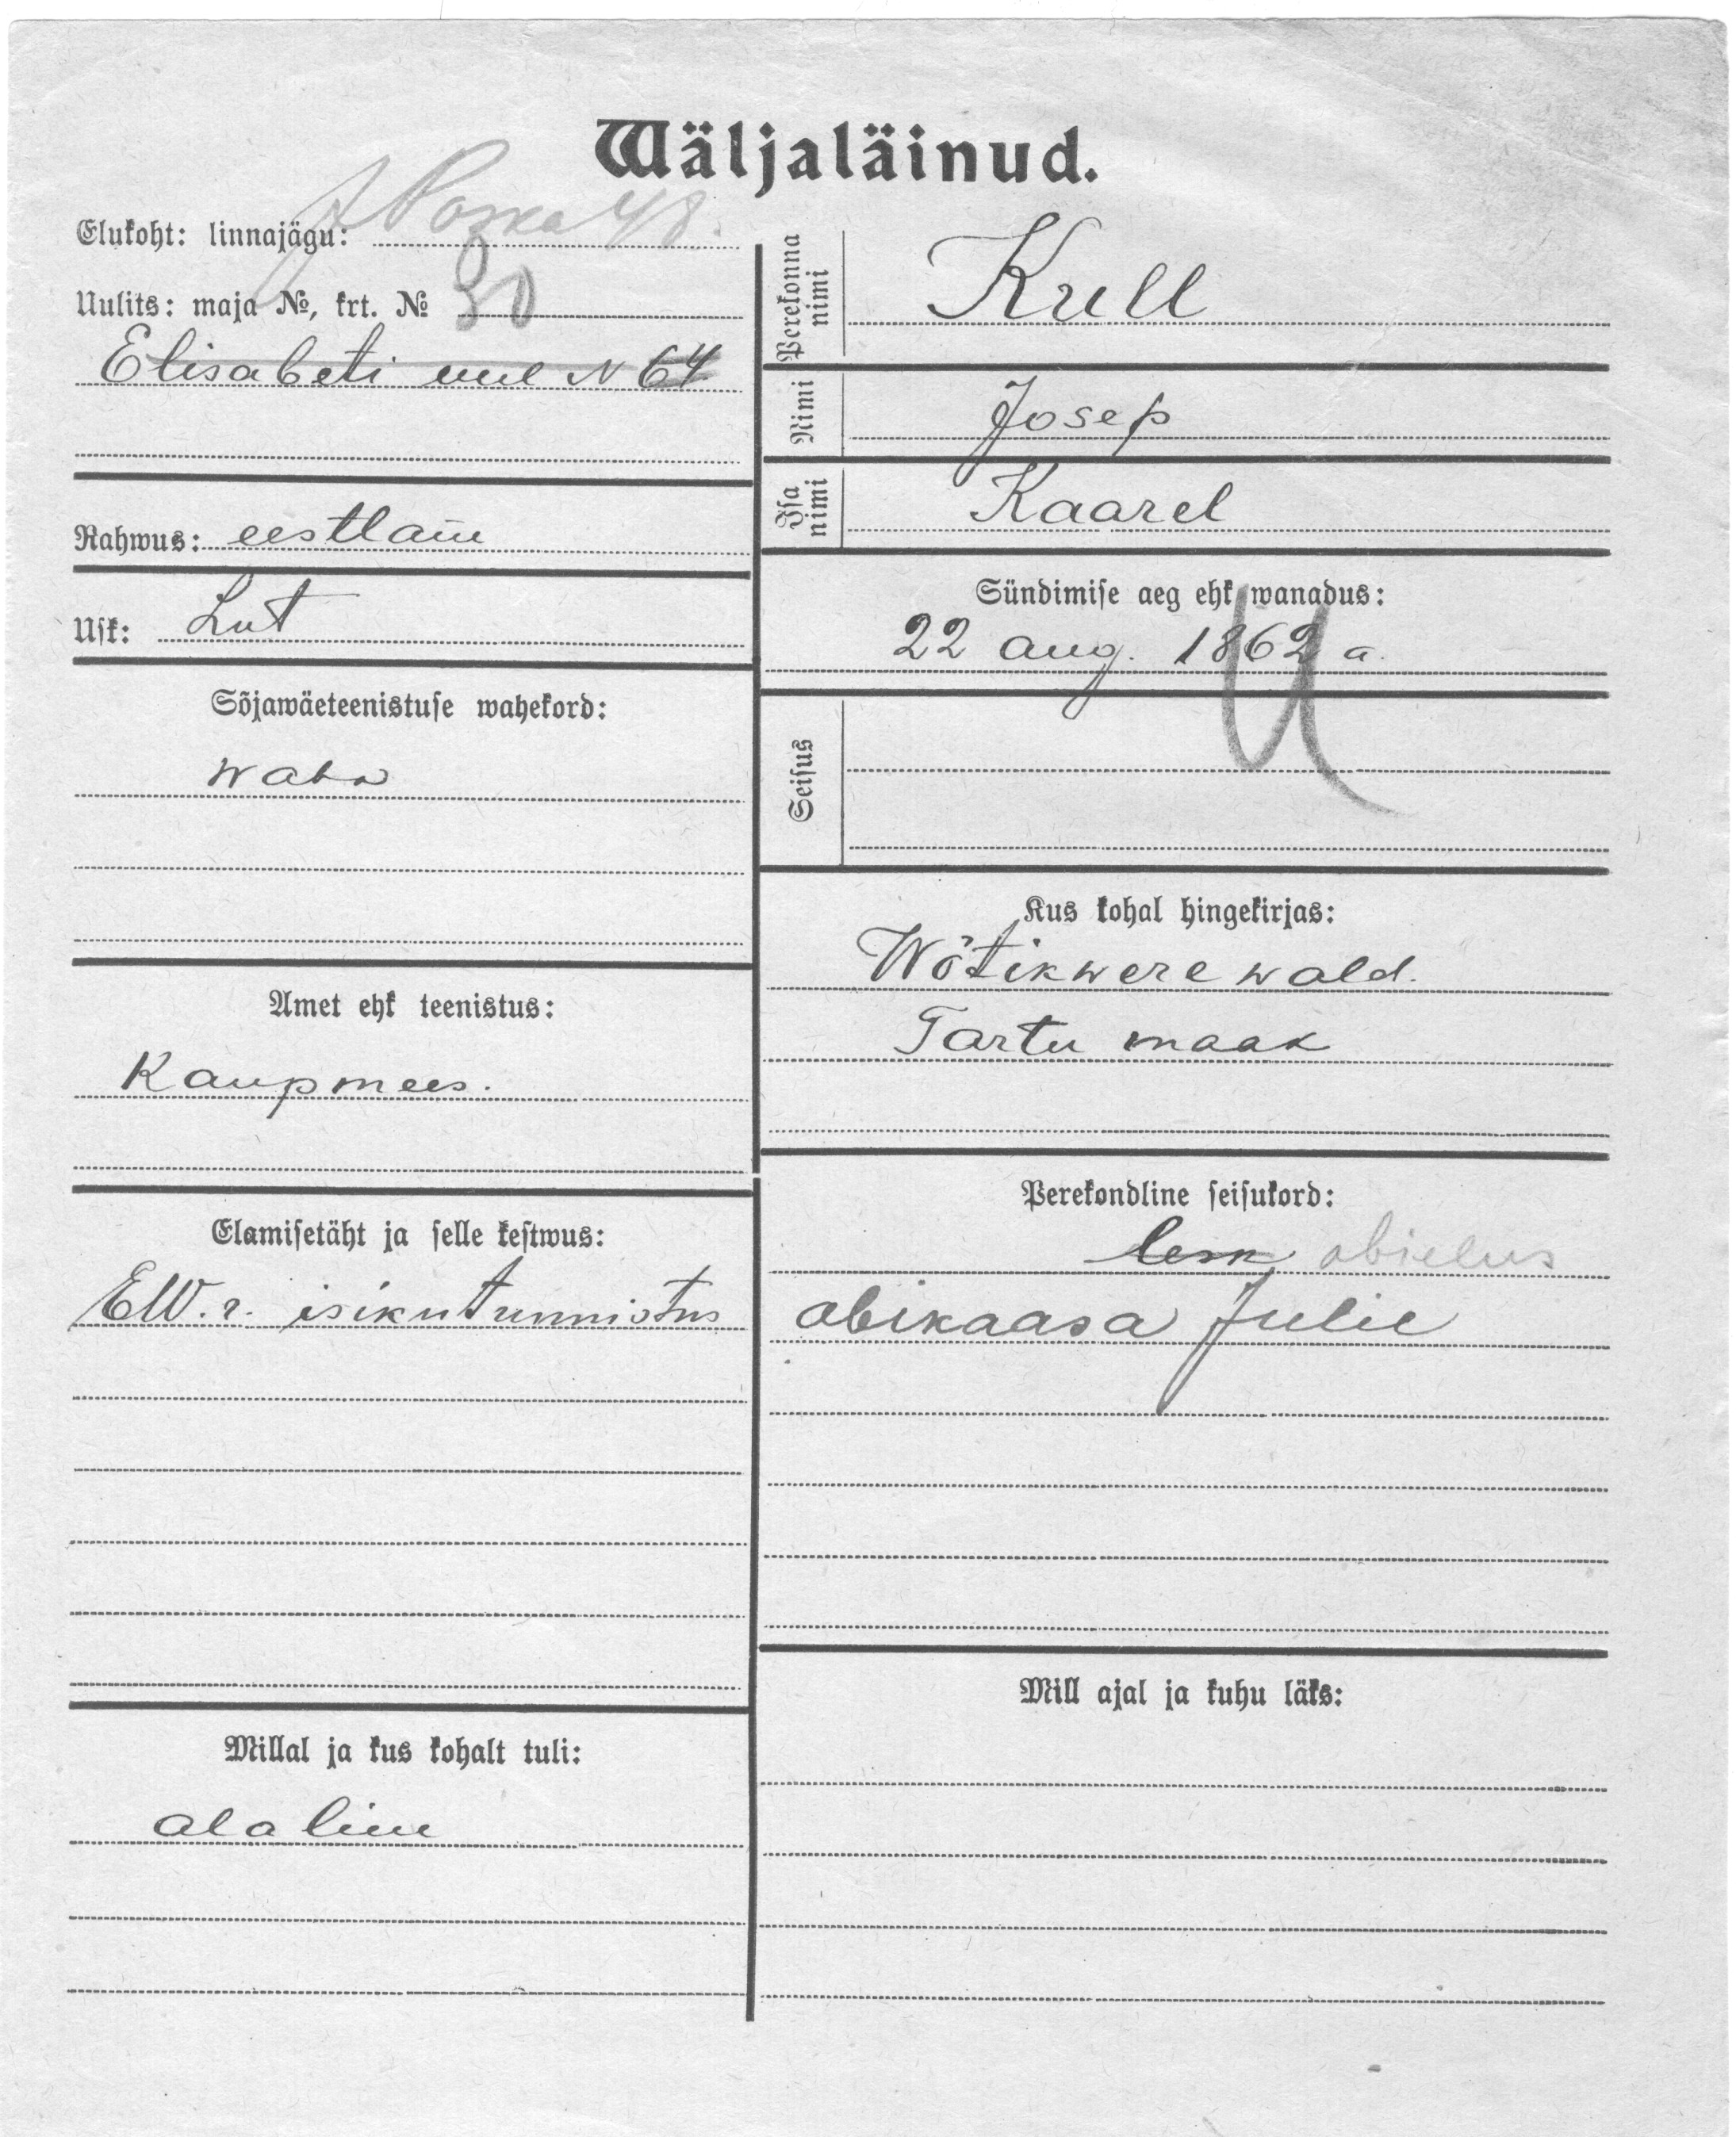 Wäljaläinud.
Elukoht: linnajägu: J Poska 48.
Uulits: maja №, krt. № 30
Elisabeti uul N 64
Rahwus: eestlane
Usk: Lut
Sõjawäeteenistuse wahekord:
waba
Amet ehk teenistus:
Kaupmees.
Elamisetäht ja selle kestwus:
EW.r. isikutunnistus
Millal ja kus kohalt tuli:
alaline
Perekonna nimi Kull
Nimi Josep
Isa nimi Kaarel
Sündimise aeg ehk wanadus:
22 aug. 1862 a.
Seisus
Kus kohal hingekirjas:
Wõtikwere wald.
Tartu maak
Perekondline seisukord:
lesk abielus
abikaasa Julie
Mill ajal ja kuhu läks: